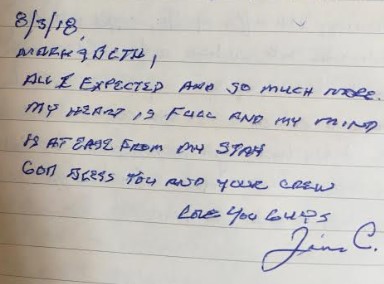 8/3/18
MARK & BETH,
ALL I EXPECTED AND SO MUCH MORE.
MY HEART IS FULL AND MY MIND
IS AT EASE FROM MY STAY
GOD BLESS YOU AND YOUR CREW
LOVE YOU GUYS
Jim C.